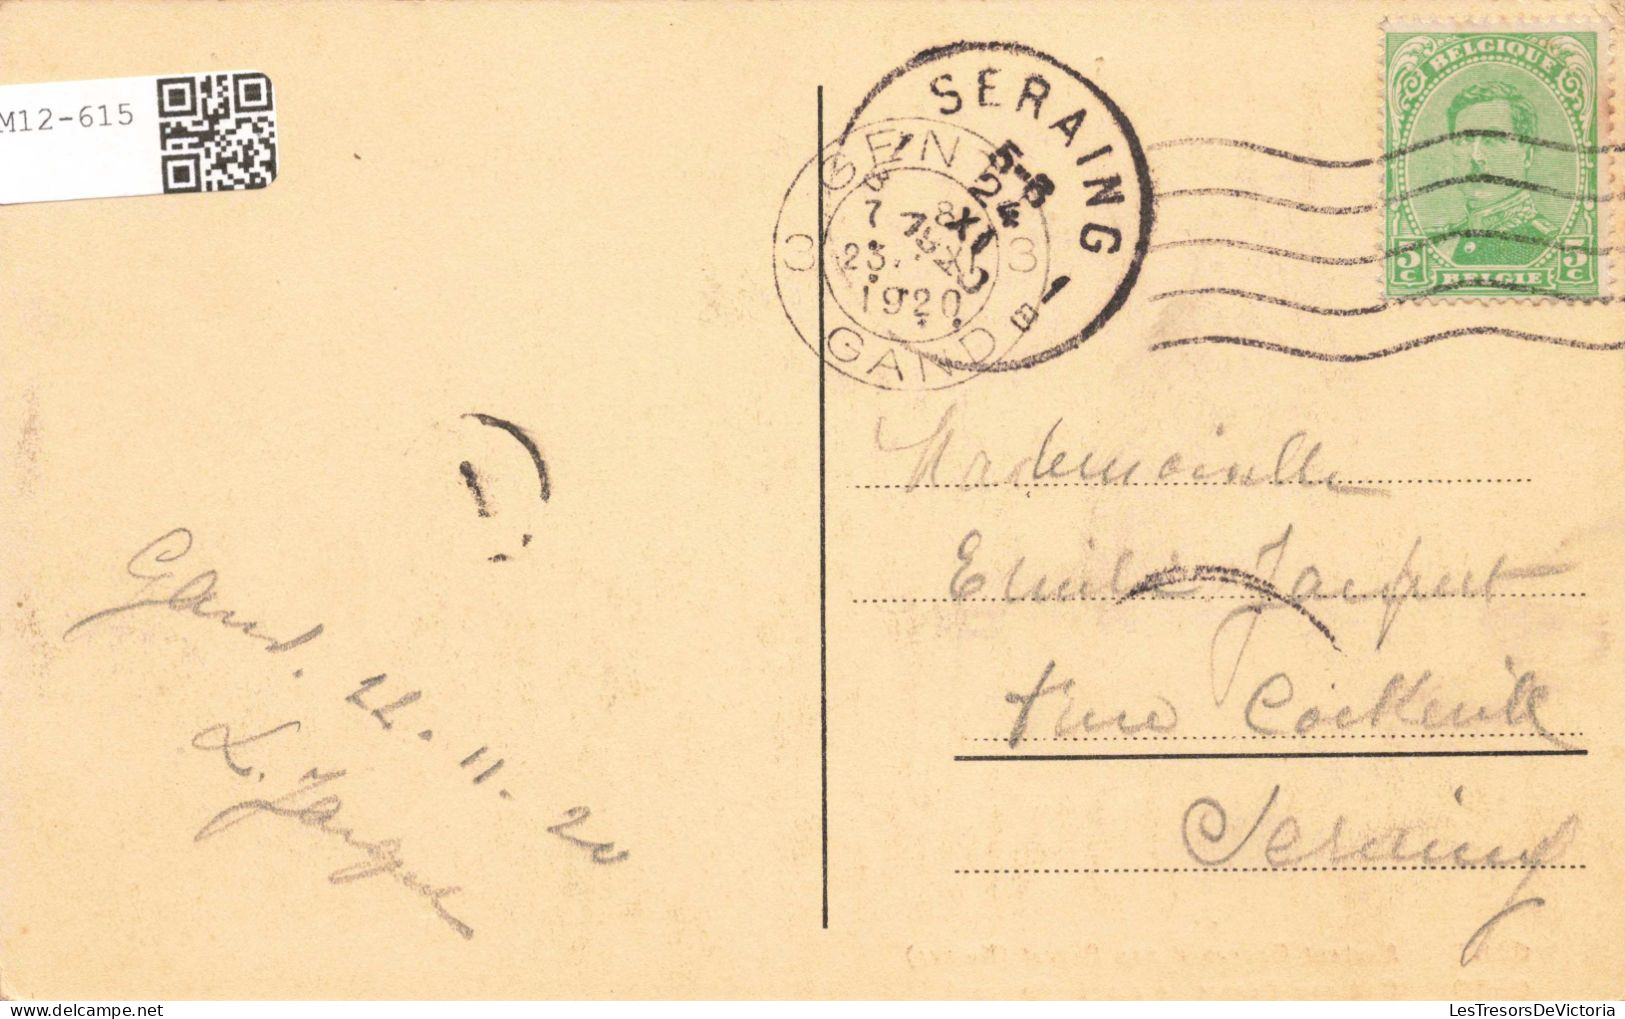 M12-615
BELGIQUE
5c 5c
BELGIË
SERAING
5-6
24
XI
1
GENT
3 3
7 8
23.
1920
GAND
Mademoiselle
Emilie Jacquet
rue Cockerill
Seraing
Gand. 22.11.20
L. Jacquet
LesTresorsDeVictoria.com